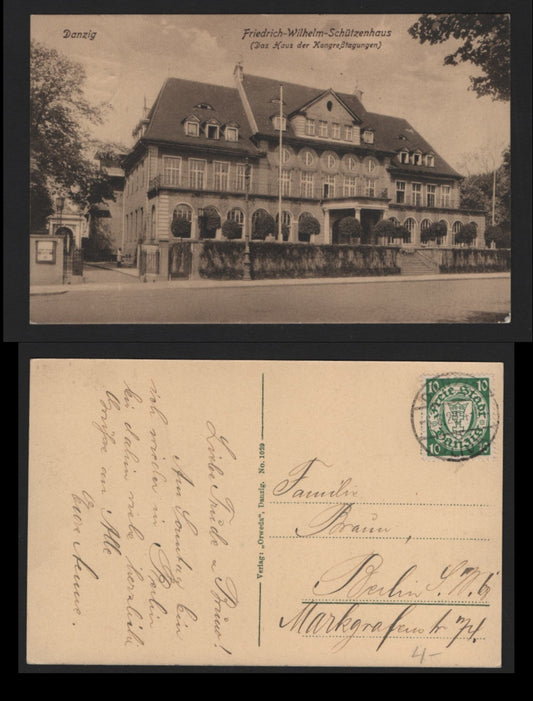 Danzig
Friedrich-Wilhelm-Schützenhaus
(Das Haus der Kongreßtagungen)
Liebe Trude u Bruno!
Am Sonntag bin
ich wieder in Berlin
bis dahin viele herzliche
Grüße an Alle
Eure
Verlag: „Orweda", Danzig. No. 1029
10 10
Freie Stadt
Danzig
10
Familie
Braun,
Berlin S.W. 6
Markgrafenstr 74.
4-